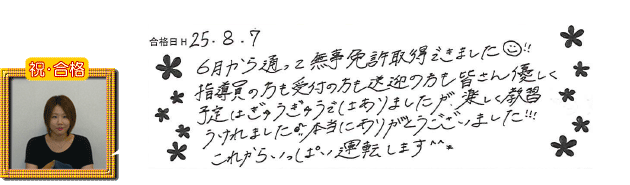 合格日H25.8.7
祝・合格
6月から通って無事免許取得できました!!
指導員の方も受付の方も送迎の方も皆さん優しく
予定はぎゅうぎゅうではありましたが、楽しく教習
うけれました♪本当にありがとうございました!!!
これからいっぱい運転します^^。